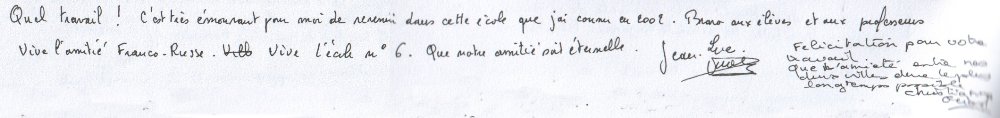 Quel travail ! C'est très émouvant pour moi de revenir dans cette école que j'ai connu en 2002. Bravo aux élèves et aux professeurs
Vive l'amitié Franco-Russe. Vive l'école n° 6. Que notre amitié soit éternelle. Jean-Luc
Felicitation pour votre
travail
Que l'amitié entre nos
deux villes dure le plus
longtemps possible